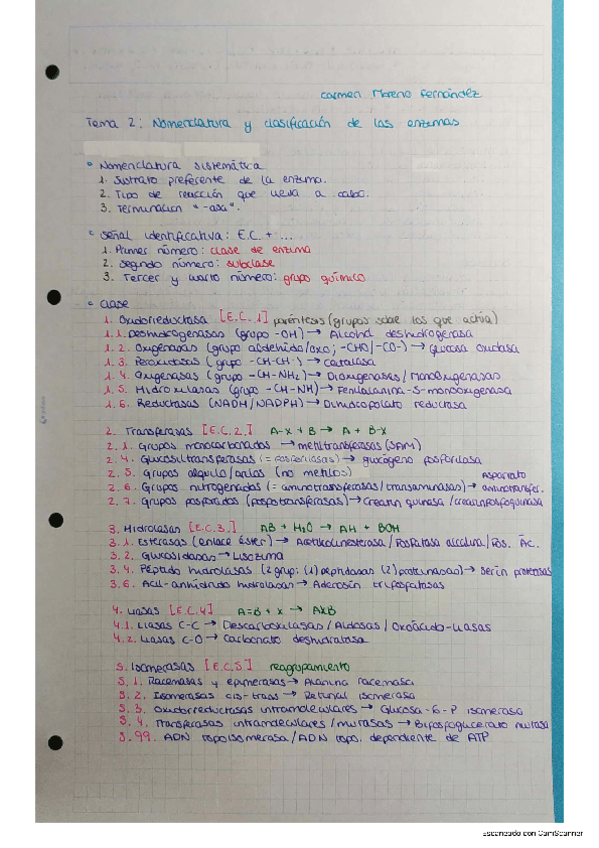 Carmen Moreno Fernández
Tema 2: Nomenclatura y clasificación de las enzimas
Nomenclatura sistemática
1. Sustrato preferente de la enzima.
2. Tipo de reacción que lleva a cabo.
3. Terminación "-asa".
Señal identificativa: E.C. + ...
1. Primer número: clase de enzima
2. Segundo número: subclase
3. Tercer y cuarto número: grupo químico
Clase
1. Oxidorreductasa [E.C. 1] paréntesis (grupos sobre los que actúa)
1.1. Deshidrogenasas (grupo -OH) → Alcohol deshidrogenasa
1.2. Oxigenadas (grupo aldehído/oxo; -CHO/-CO-) → glucosa oxidasa
1.3. Peroxidasas (grupo -CH-CH-) → catalasa
1.4. Oxigenasas (grupo -CH-NH2) → Dioxigenasas/Monooxigenasas
1.5. Hidroxilasas (grupo -CH-NH) → Fenilalanina-5-monooxigenasa
1.6. Reductasas (NADH/NADPH) → reductasa
2. Transferasas [E.C. 2.] A-X + B → A + B-X
2.1. Grupos monocarbonados → metiltransferasas (SAM)
2.4. Glucosiltransferasas (= fosforilasas) → glucógeno fosforilasa
2.5. Grupos alquilo/arilos (no metilos)
2.6. Grupos nitrogenados (= aminotransferasas/transaminasas) → Aspartato aminotransfer.
2.7. Grupos fosforados (fosfotransferasas) → Creatin quinasa/creatinfosfoquinasa
3. Hidrolasas [E.C. 3.] AB + H2O → AH + BOH
3.1. Esterasas (enlace éster) → Acetilcolinesterasa/Fosfatasa alcalina/Fos. Ác.
3.2. Glucosidasas → Lisozima
3.4. Péptido hidrolasas (2 grup: (1) peptidasas (2) proteinasas) → Serin proteasas
3.6. Acil-anhídrido hidrolasas → Adenosín trifosfatasas
4. Liasas [E.C. 4] A=B + X → AXB
4.1. Liasas C-C → Descarboxilasas/Aldolasas/Oxoácido-Liasas
4.2. Liasas C-O → Carbonato deshidratasa
5. Isomerasas [E.C. 5] reagrupamiento
5.1. Racemasas y epimerasas → Alanina racemasa
5.2. Isomerasas cis-trans → Retinal isomerasa
5.3. Oxidorreductasas intramoleculares → Glucosa-6-P isomerasa
5.4. Transferasas intramoleculares/mutasas → Bifosfoglicerato mutasa
5.99. ADN topoisomerasa/ADN topo. dependiente de ATP
Escaneado con CamScanner